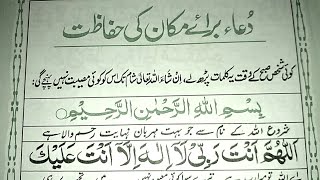 دُعاء برائے مکان کی حفاظت
کوئی شخص صبح کے وقت یہ کلمات پڑھ لے، اِنْ شَاءَ اللہُ تَعَالیٰ شام تک اس کو کوئی مصیبت نہیں پہنچے گی:
بِسْمِ اللّٰهِ الرَّحْمٰنِ الرَّحِيْمِ
شروع اللہ کے نام سے جو بہت مہربان نہایت رحم والا ہے
اَللّٰهُمَّ اَنْتَ رَبِّيْ لَاۤ اِلٰهَ اِلَّا اَنْتَ عَلَيْكَ